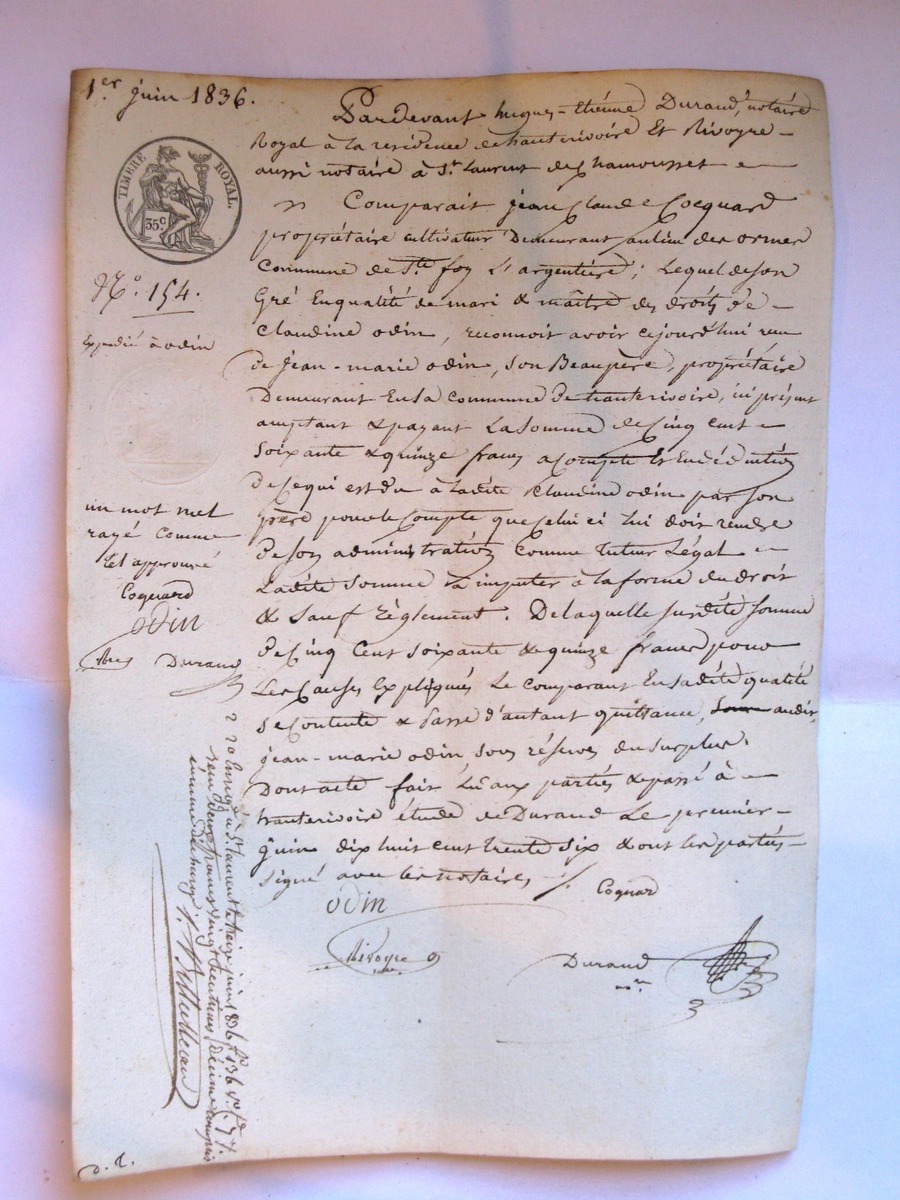 1er juin 1836.
TIMBRE ROYAL.
35c
No. 154.
Expédié à odin
un mot nul
rayé comme
tel approuvé
Coquard
odin
Durand
Pardevant hugues-Etienne Durand, notaire
Royal à la residence de hauterivoire Et Rivoyre
aussi notaire à St. Laurent de Chamousset
Comparait jean Claude Cocquard
propriétaire cultivateur Demeurant au lieu des ormes
Commune de Ste foy L'argentière; Lequel de son
Gré En qualité de mari & maître des droits de
Claudine odin, reconnoit avoir cejourd'hui reçu
de jean-marie odin, son Beaupère, propriétaire
Demeurant En sa commune de hauterivoire, ici présent
acceptant & payant La somme de Cinq cent
soixante & quinze francs acompte Et En déduction
de Ce qui est du à Ladite Claudine odin par son
père pour le Compte que Celui ci lui doit rendre
de son administration Comme tuteur Légal
Ladite somme à imputer à la forme du droit
& sauf règlement. De laquelle susdite somme
de Cinq Cent soixante & quinze francs pour
Les Causes Expliquées Le comparant En sadite qualité
se Contente & passe d'autant quittance, audit
jean-marie odin, sous réserves du surplus.
Dont acte fait Lu aux parties & passé à
hauterivoire étude de Durand Le premier
juin dix huit cent trente six & ont les parties
signé avec les notaires
Coquard
odin
Rivoyre
Durand
nre
Enregé à St Laurent le treize juin 1836 fo 136 vo
reçu deux francs vingt centimes, décime compris
D. L.